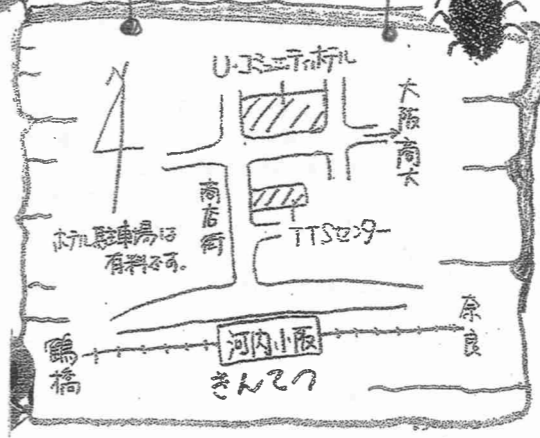 U・コミュニティホテル
大阪商大
商店街
TTSセンター
ホテル駐車場は
有料です。
奈良
鶴橋
河内小阪
きんてつ